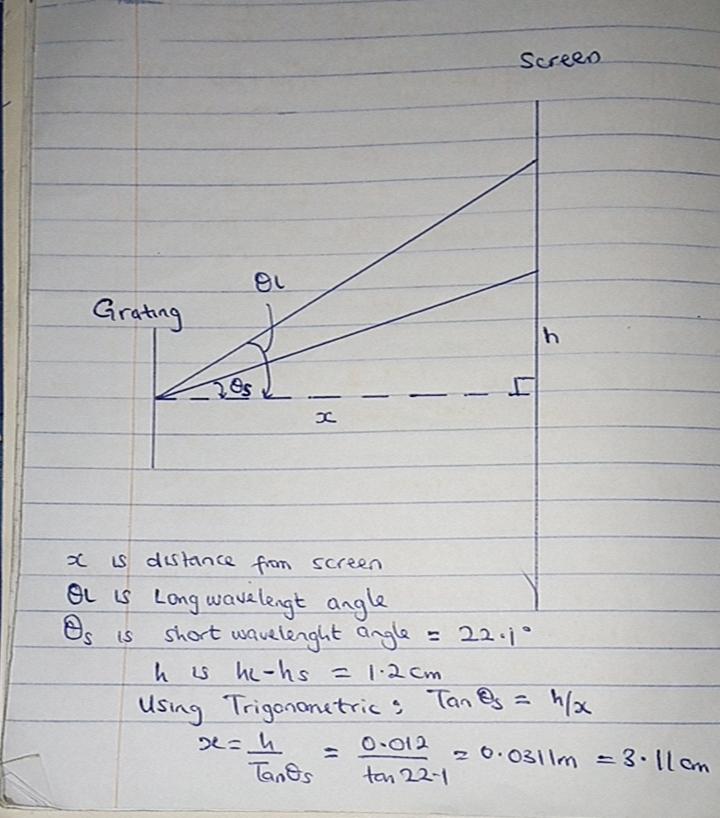 Screen
θL
Grating
h
θs
x
x is distance from screen
θL is Longwavelengt angle
θs is short wavelenght angle = 22.1°
h is hL-hs = 1.2cm
Using Trigonometric; Tan θs = h/x
x = h/Tanθs = 0.012/tan 22.1 = 0.0311m = 3.11cm